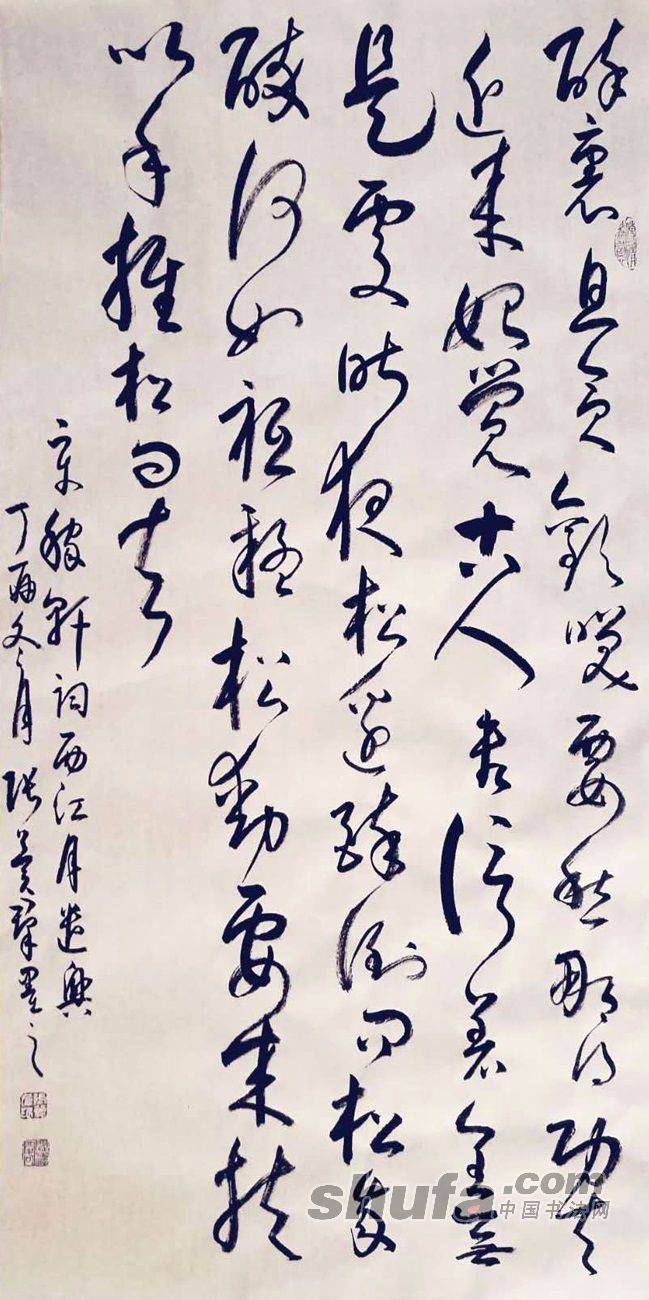 醉裏且貪歡笑要愁那得功夫
近来始覺古人書信着全無
是處昨夜松邊醉倒问松我
醉何如祗疑松動要来扶
以手推松曰去
辛稼軒詞西江月遣興
丁酉冬月張之
shufa.com
中国书法网